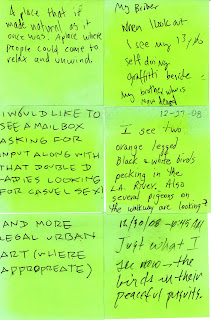 A place that if
made natural, as it
once was. A place where
people could come to
relax and unwind.
My Brother
When I look out
I see my 13 y/o
self doing
graffiti beside
my brother who is
now dead
I WOULD LIKE TO
SEE A MAILBOX
ASKING FOR
INPUT ALONG WITH
THAT DOUBLE D
LADIES LOOKING
FOR CASUEL SEX!
12-27-08
I see two
orange legged
Black & white birds
pecking in the
L.A. River. Also
several pigeons on
the walkway are looking?
AND MORE
LEGAL URBAN
ART (WHERE
APPROPREATE)
12/30/08 - 10:45 AM
Just what I
see now - the
birds in their
peaceful pursuits.